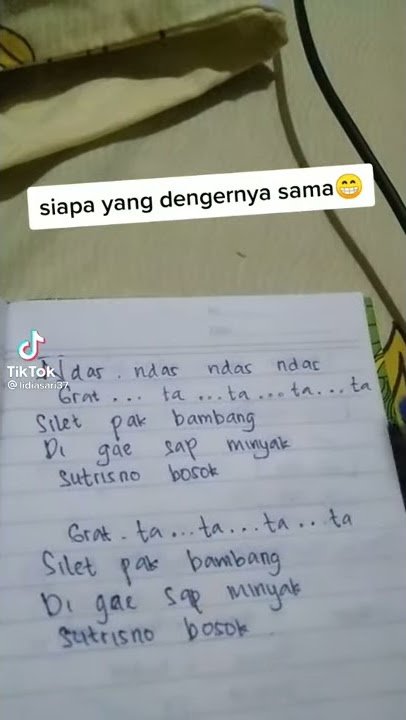 siapa yang dengernya sama😁
TikTok
@lidiasari37
Ndas . ndas ndas ndas
Grat ... ta ... ta ... ta ... ta
Silet pak bambang
Di gae sap minyak
sutrisno bosok
Grat . ta ... ta ... ta .. ta
Silet pak bambang
Di gae sap minyak
sutrisno bosok .